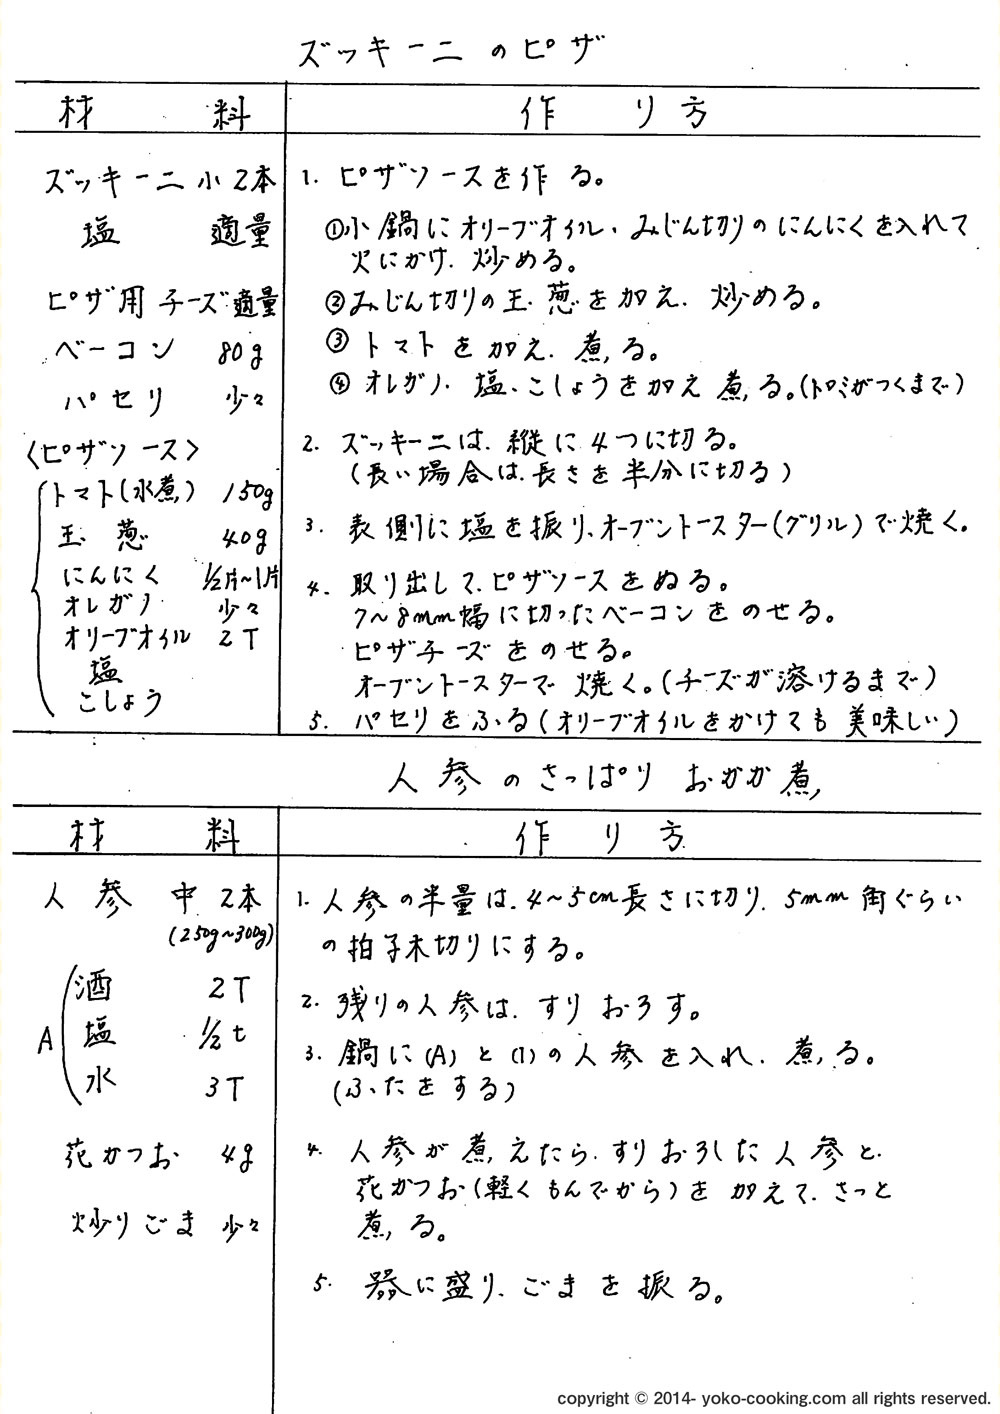 ズッキーニのピザ
材 料
作 り 方
ズッキーニ 小 2本
塩 適量
ピザ用チーズ 適量
ベーコン 80g
パセリ 少々
〈ピザソース〉
トマト(水煮) 150g
玉葱 40g
にんにく 1/2片~1片
オレガノ 少々
オリーブオイル 2T
塩
こしょう
1. ピザソースを作る。
①小鍋にオリーブオイル、みじん切りのにんにくを入れて
火にかけ、炒める。
②みじん切りの玉葱を加え、炒める。
③トマトを加え、煮る。
④オレガノ、塩、こしょうを加え煮る。(トロミがつくまで)
2. ズッキーニは、縦に4つに切る。
(長い場合は、長さを半分に切る)
3. 表側に塩を振り、オーブントースター(グリル)で焼く。
4. 取り出して、ピザソースをぬる。
7~8mm幅に切ったベーコンをのせる。
ピザチーズをのせる。
オーブントースターで焼く。(チーズが溶けるまで)
5. パセリをふる(オリーブオイルをかけても美味しい)
人参のさっぱりおかか煮
材 料
作 り 方
人参 中2本
(250g~300g)
A
酒 2T
塩 1/2t
水 3T
花かつお 4g
炒りごま 少々
1. 人参の半量は、4~5cm長さに切り、5mm角ぐらい
の拍子木切りにする。
2. 残りの人参は、すりおろす。
3. 鍋に(A)と(1)の人参を入れ、煮る。
(ふたをする)
4. 人参が煮えたら、すりおろした人参と、
花かつお(軽くもんでから)を加えて、さっと
煮る。
5. 器に盛り、ごまを振る。
copyright © 2014- yoko-cooking.com all rights reserved.